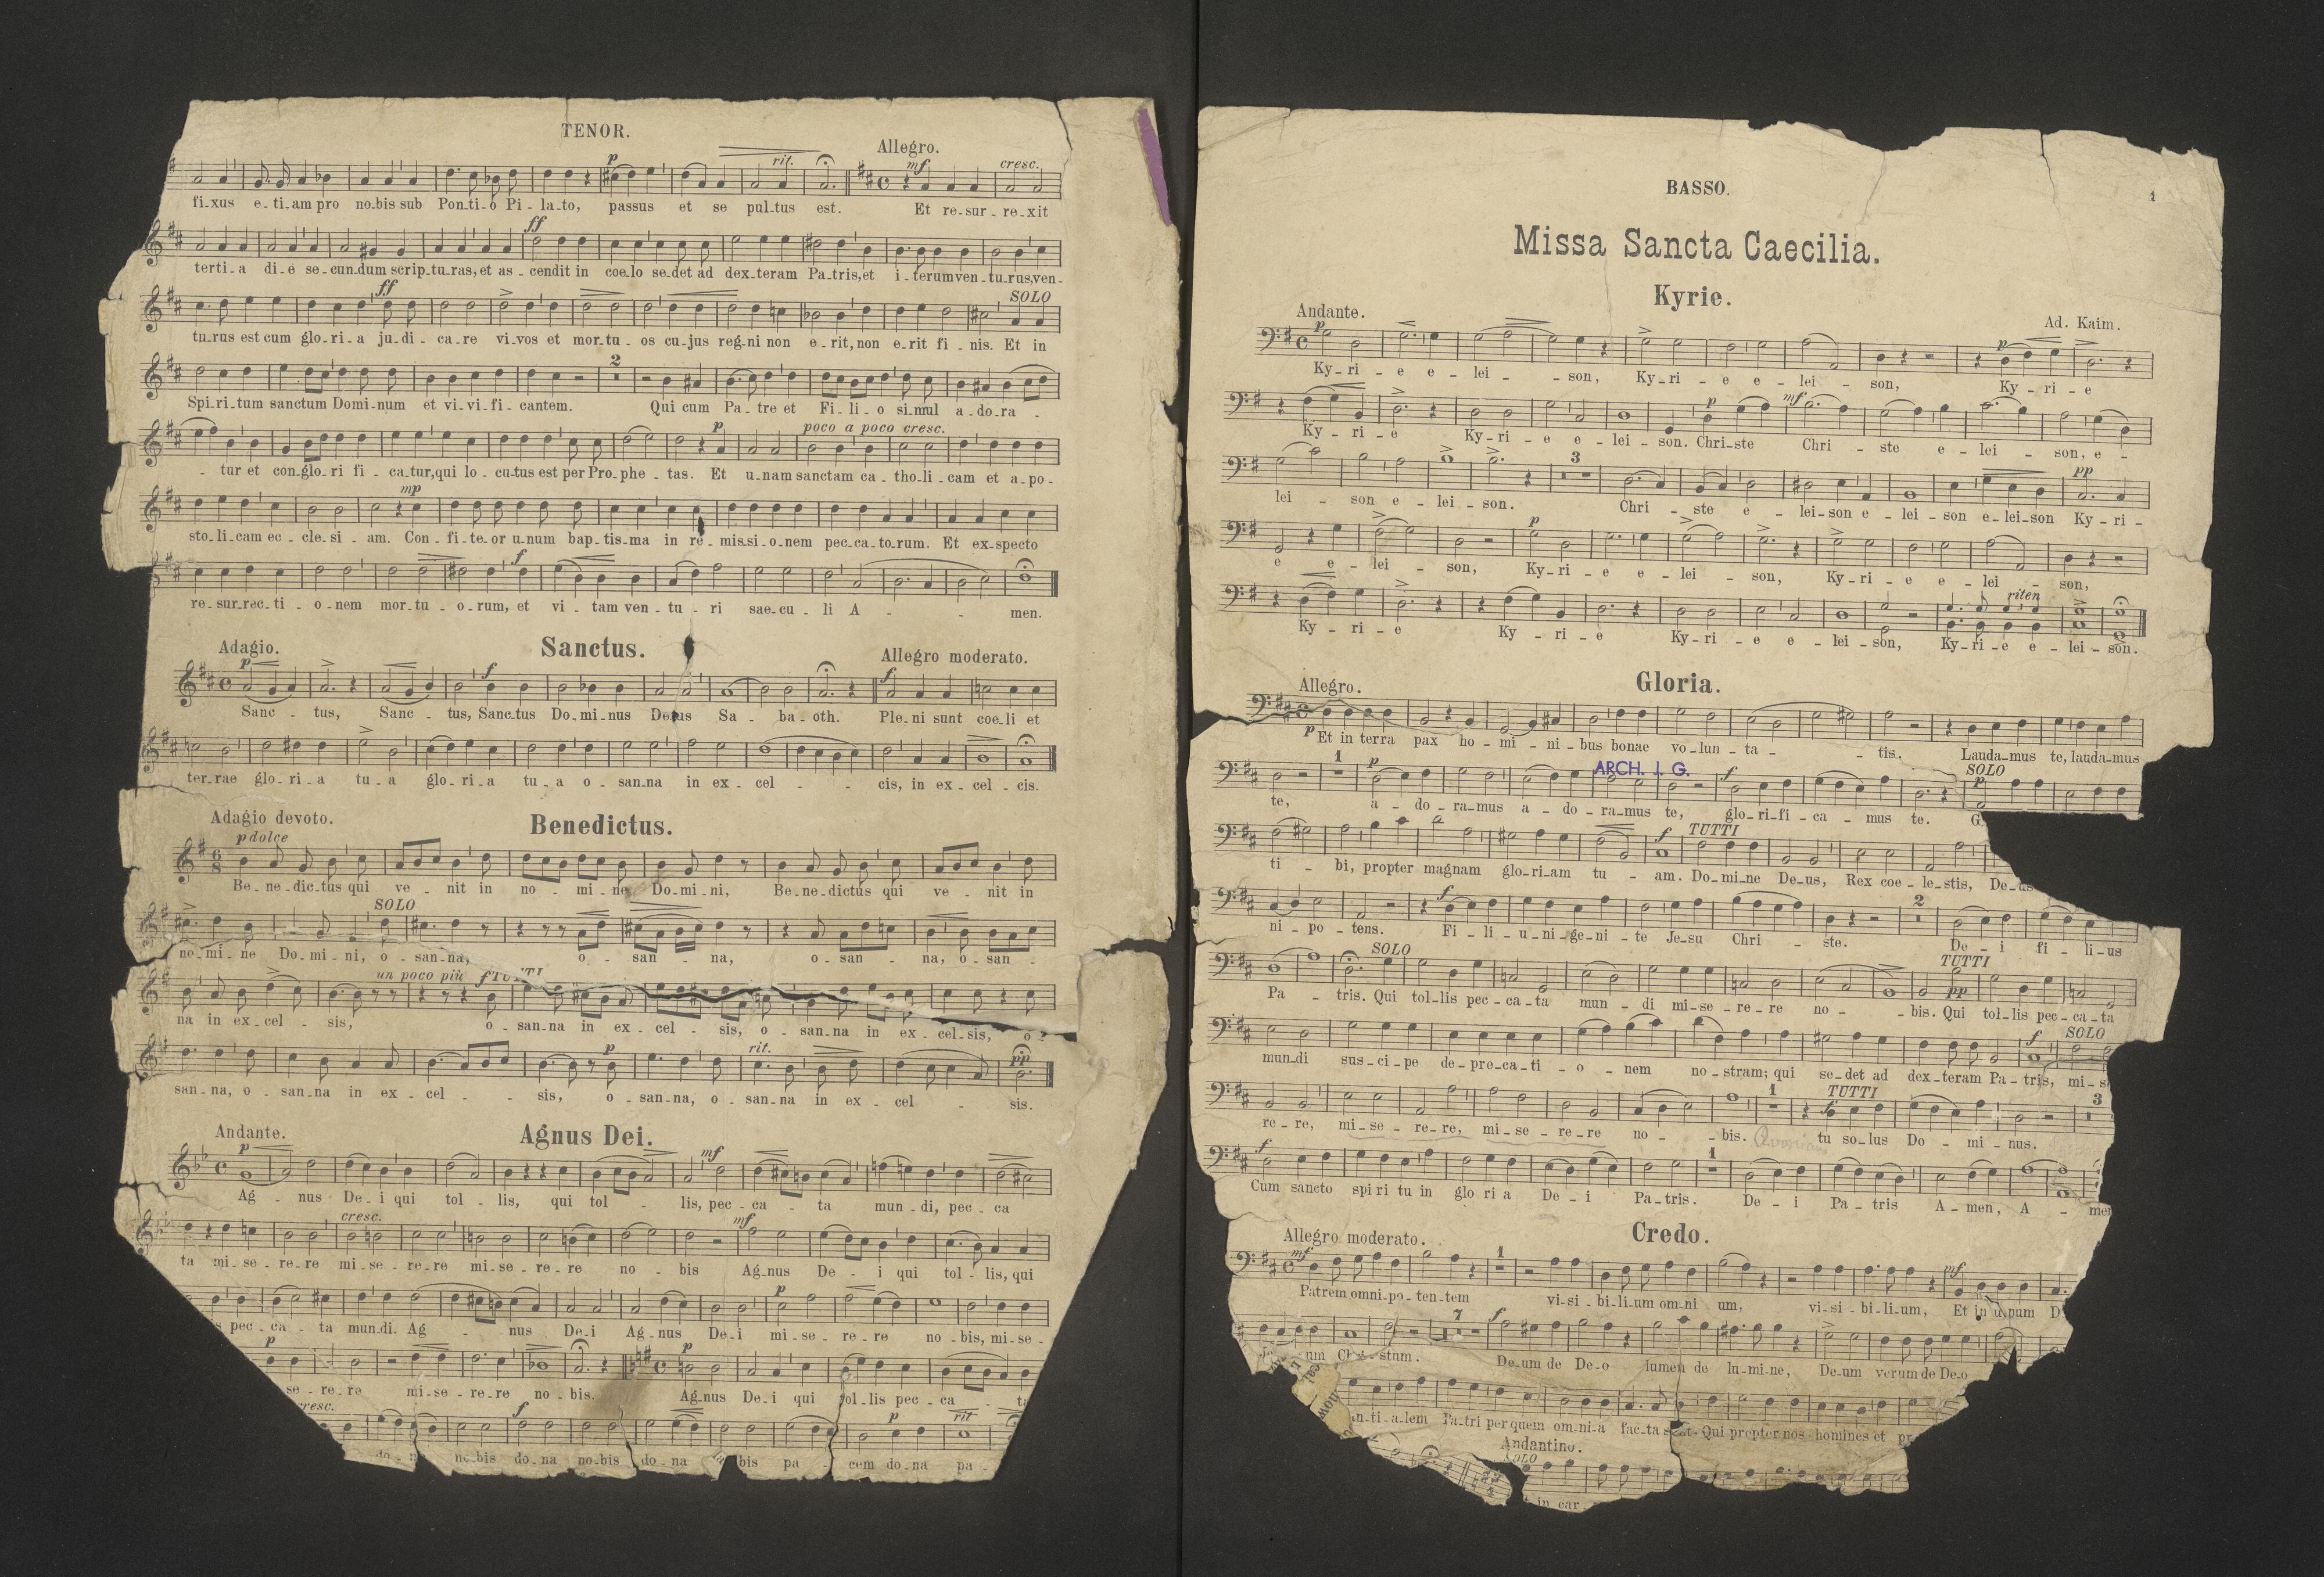 TENOR.
Allegro.
p rit. mf cresc.
fi-xus e-ti-am pro no-bis sub Pon-ti-o Pi-la-to, passus et se pul-tus est. Et re-sur-re-xit
ff
terti-a di-e se-cun-dum scrip-tu-ras, et as-cendit in coe-lo se-det ad dex-teram Pa-tris, et i-terum ven-tu-rus, ven-
ff SOLO
tu-rus est cum glo-ri-a ju-di-ca-re vi-vos et mor-tu-os cu-jus reg-ni non e-rit, non e-rit fi-nis. Et in
2
Spi-ri-tum sanctum Domi-num et vi-vi-fi-cantem. Qui cum Pa-tre et Fi-li-o si-mul a-do-ra-
p poco a poco cresc.
-tur et con-glo-ri fi-ca-tur, qui lo-cu-tus est per Pro-phe-tas. Et u-nam sanctam ca-tho-li-cam et a-po-
mp
sto-li-cam ec-cle-si-am. Con-fi-te-or u-num bap-tis-ma in re-mis-si-o-nem pec-ca-to-rum. Et ex-specto
f
re-sur-rec-ti-o-nem mor-tu-o-rum, et vi-tam ven-tu-ri sae-cu-li A-men.
Sanctus.
Adagio. Allegro moderato.
p f f
Sanc-tus, Sanc-tus, Sanctus Do-mi-nus Deus Sa-ba-oth. Ple-ni sunt coe-li et
ter-rae glo-ri-a tu-a glo-ri-a tu-a o-san-na in ex-cel-cis, in ex-cel-cis.
Benedictus.
Adagio devoto.
p dolce
6
8
Be-ne-dic-tus qui ve-nit in no-mi-ne Do-mi-ni, Be-ne-dictus qui ve-nit in
SOLO
no-mi-ne Do-mi-ni, o-san-na, o-san-na, o-san-na, o-san-
un poco più f TUTTI
na in ex-cel-sis, o-san-na in ex-cel-sis, o-san-na in ex-cel-sis, o-
p rit. pp
san-na, o-san-na in ex-cel-sis, o-san-na, o-san-na in ex-cel-sis.
Agnus Dei.
Andante.
p mf
Ag-nus De-i qui tol-lis, qui tol-lis, pec-ca-ta mun-di, pec-ca
cresc. mf
ta mi-se-re-re mi-se-re-re mi-se-re-re no-bis Ag-nus De-i qui tol-lis, qui
p
pec-ca-ta mun-di. Ag-nus De-i Ag-nus De-i mi-se-re-re no-bis, mi-se-
p p
se-re-re mi-se-re-re no-bis. Ag-nus De-i qui tol-lis pec-ca
f p rit
do-na no-bis do-na no-bis do-na bis pa-cem do-na pa-
BASSO.
1
Missa Sancta Caecilia.
Kyrie.
Andante.
Ad. Kaim.
p p
Ky-ri-e e-lei-son, Ky-ri-e e-lei-son, Ky-ri-e
p mf
Ky-ri-e Ky-ri-e e-lei-son. Chri-ste Chri-ste e-lei-son, e-
3 pp
lei-son e-lei-son. Chri-ste e-lei-son e-lei-son e-lei-son Ky-ri-
p
e e-lei-son, Ky-ri-e e-lei-son, Ky-ri-e e-lei-son,
riten
Ky-ri-e Ky-ri-e Ky-ri-e e-lei-son, Ky-ri-e e-lei-son.
Gloria.
Allegro.
p Et in terra pax ho-mi-ni-bus bonae vo-lun-ta-tis. Lauda-mus te, lauda-mus
1 p ARCH. J. G. f SOLO p
te, a-do-ra-mus a-do-ra-mus te, glo-ri-fi-ca-mus te. G
f TUTTI
ti-bi, propter magnam glo-ri-am tu-am. Do-mi-ne De-us, Rex coe-le-stis, De-us
f 2
ni-po-tens. Fi-li-u-ni-ge-ni-te Je-su Chri-ste. De-i fi-li-us
SOLO TUTTI pp
Pa-tris. Qui tol-lis pec-ca-ta mun-di mi-se-re-re no-bis. Qui tol-lis pec-ca-ta
f SOLO
mun-di sus-ci-pe de-pre-ca-ti-o-nem no-stram; qui se-det ad dex-teram Pa-tris, mi-s
1 TUTTI f 3
re-re, mi-se-re-re, mi-se-re-re no-bis. tu so-lus Do-mi-nus.
f 1
Cum sancto spi ri tu in glo ri a De-i Pa-tris. De-i Pa-tris A-men, A-men
Credo.
Allegro moderato.
mf 1 mf
Patrem omni-po-ten-tem vi-si-bi-li-um om-ni um, vi-si-bi-li-um, Et in unum D
7 f
um Chri-stum. De-um de De-o lumen de lu-mi-ne, De-um verum de De-o
n-ti-a-lem Pa-tri per quem om-ni-a fac-ta sunt. Qui propter nos homines et pr
Andantino.
SOLO
t in car